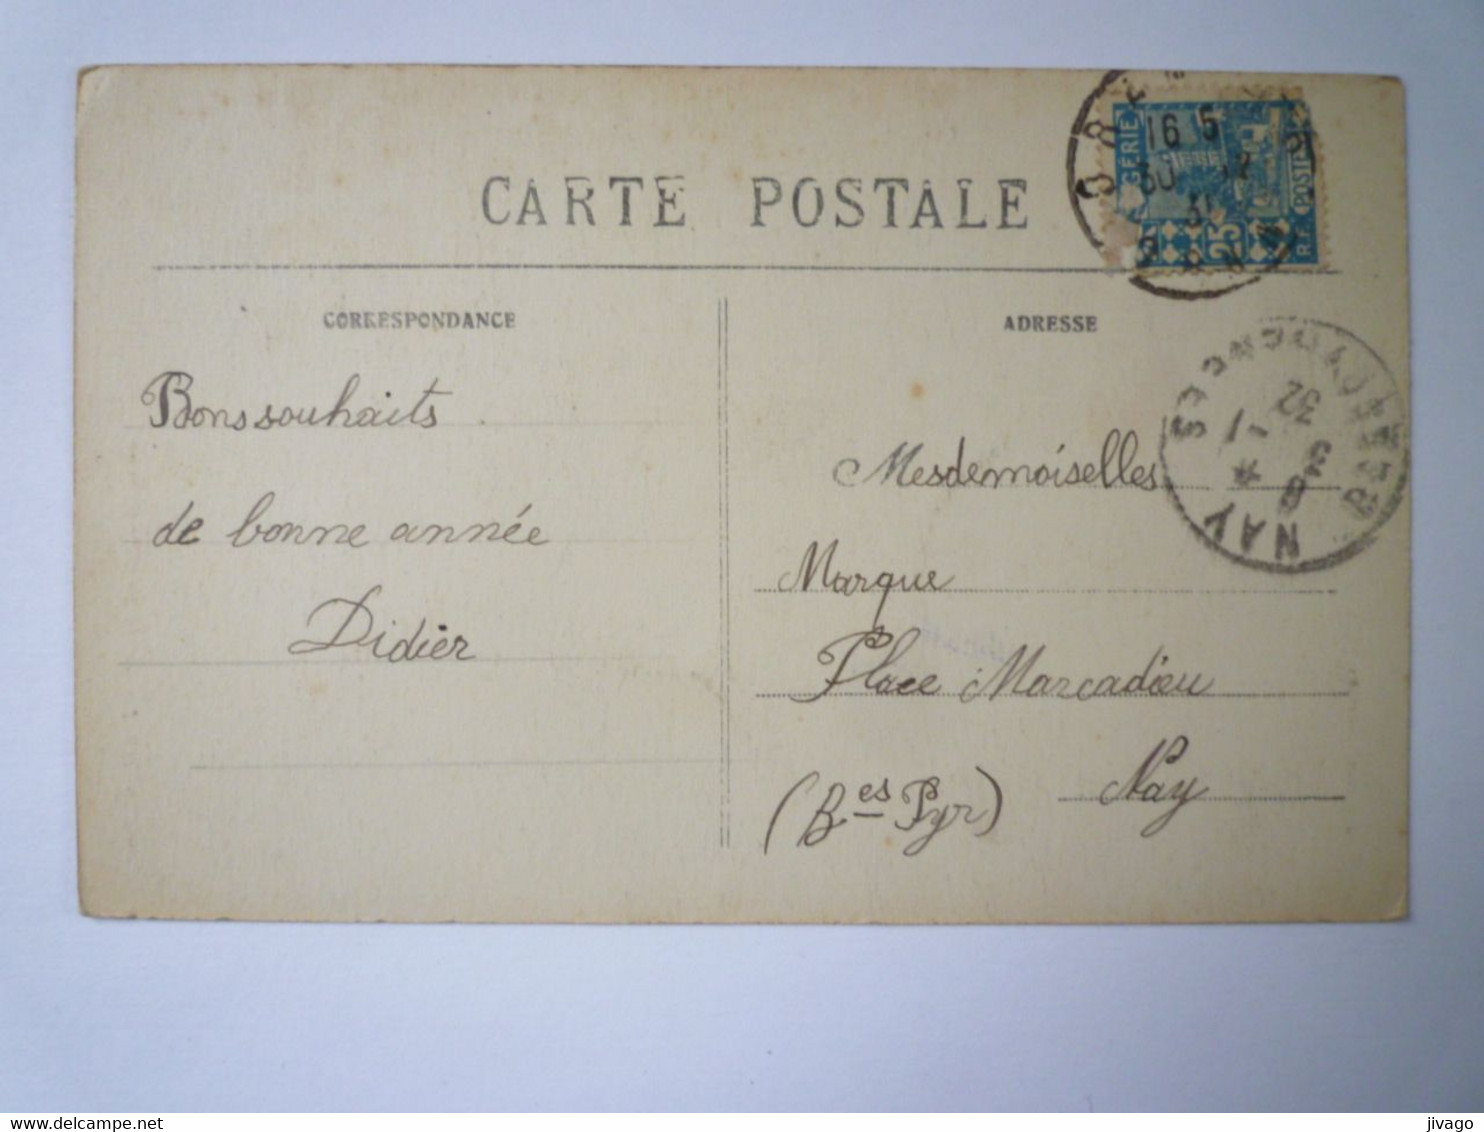 CARTE POSTALE
16 5
30 12
31
GÉRIE
25
POSTES
R.F.
CORRESPONDANCE
ADRESSE
Bons souhaits
de bonne année
Didier
Mesdemoiselles
Marque
Place Marcadieu
Nay
(Bes Pyr)
NAY
32
jivago